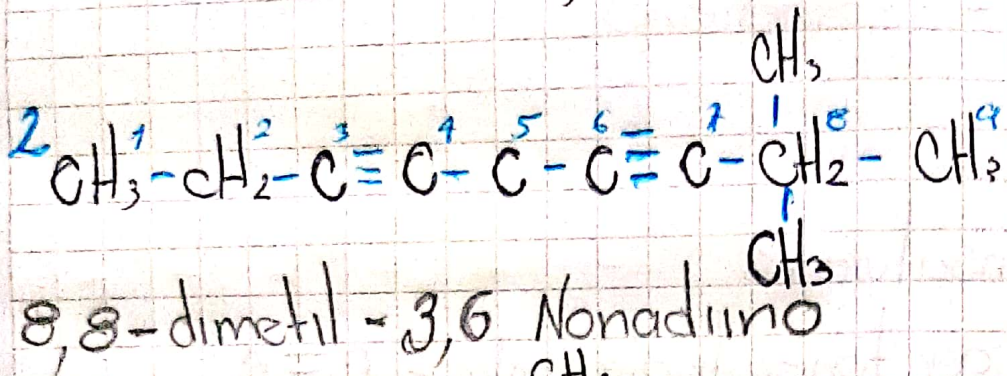 CH₃
2 CH₃¹-CH₂²-C³≡C⁴-C⁵-C⁶≡C⁷-CH₂⁸-CH₃⁹
CH₃
8,8-dimetil-3,6 Nonadiino